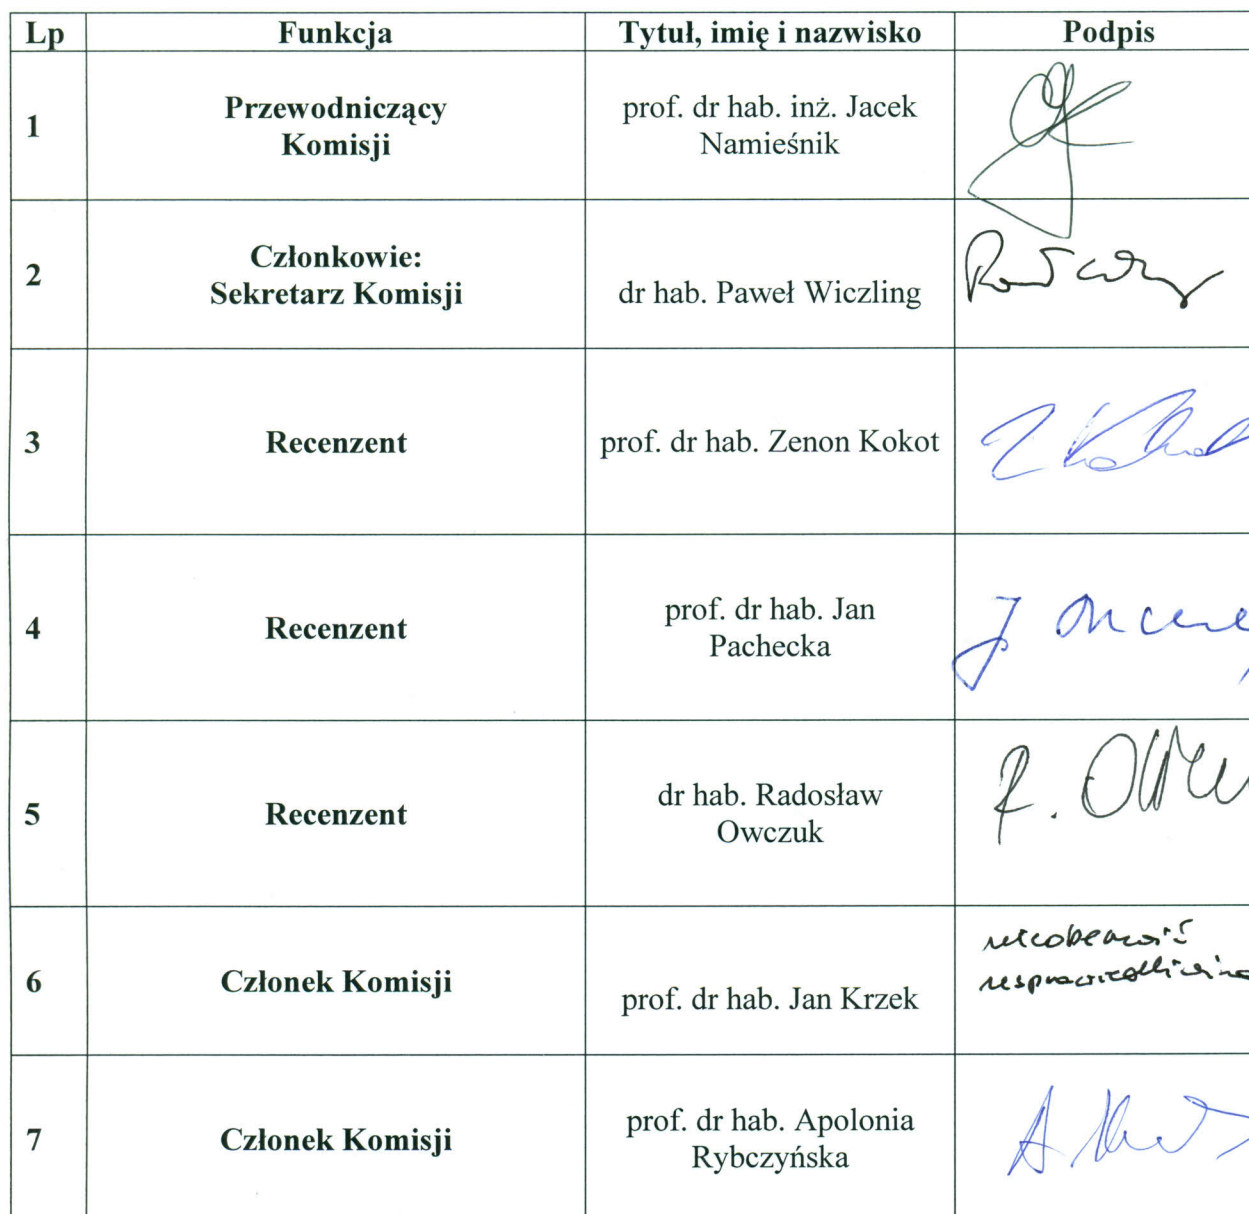 Lp Funkcja Tytuł, imię i nazwisko Podpis
1 Przewodniczący Komisji prof. dr hab. inż. Jacek
Namieśnik
2 Członkowie:
Sekretarz Komisji dr hab. Paweł Wiczling
3 Recenzent prof. dr hab. Zenon Kokot
4 Recenzent prof. dr hab. Jan
Pachecka
5 Recenzent dr hab. Radosław
Owczuk
R.
6 Członek Komisji prof. dr hab. Jan Krzek
nieobecność
usprawiedliwiona
7 Członek Komisji prof. dr hab. Apolonia
Rybczyńska